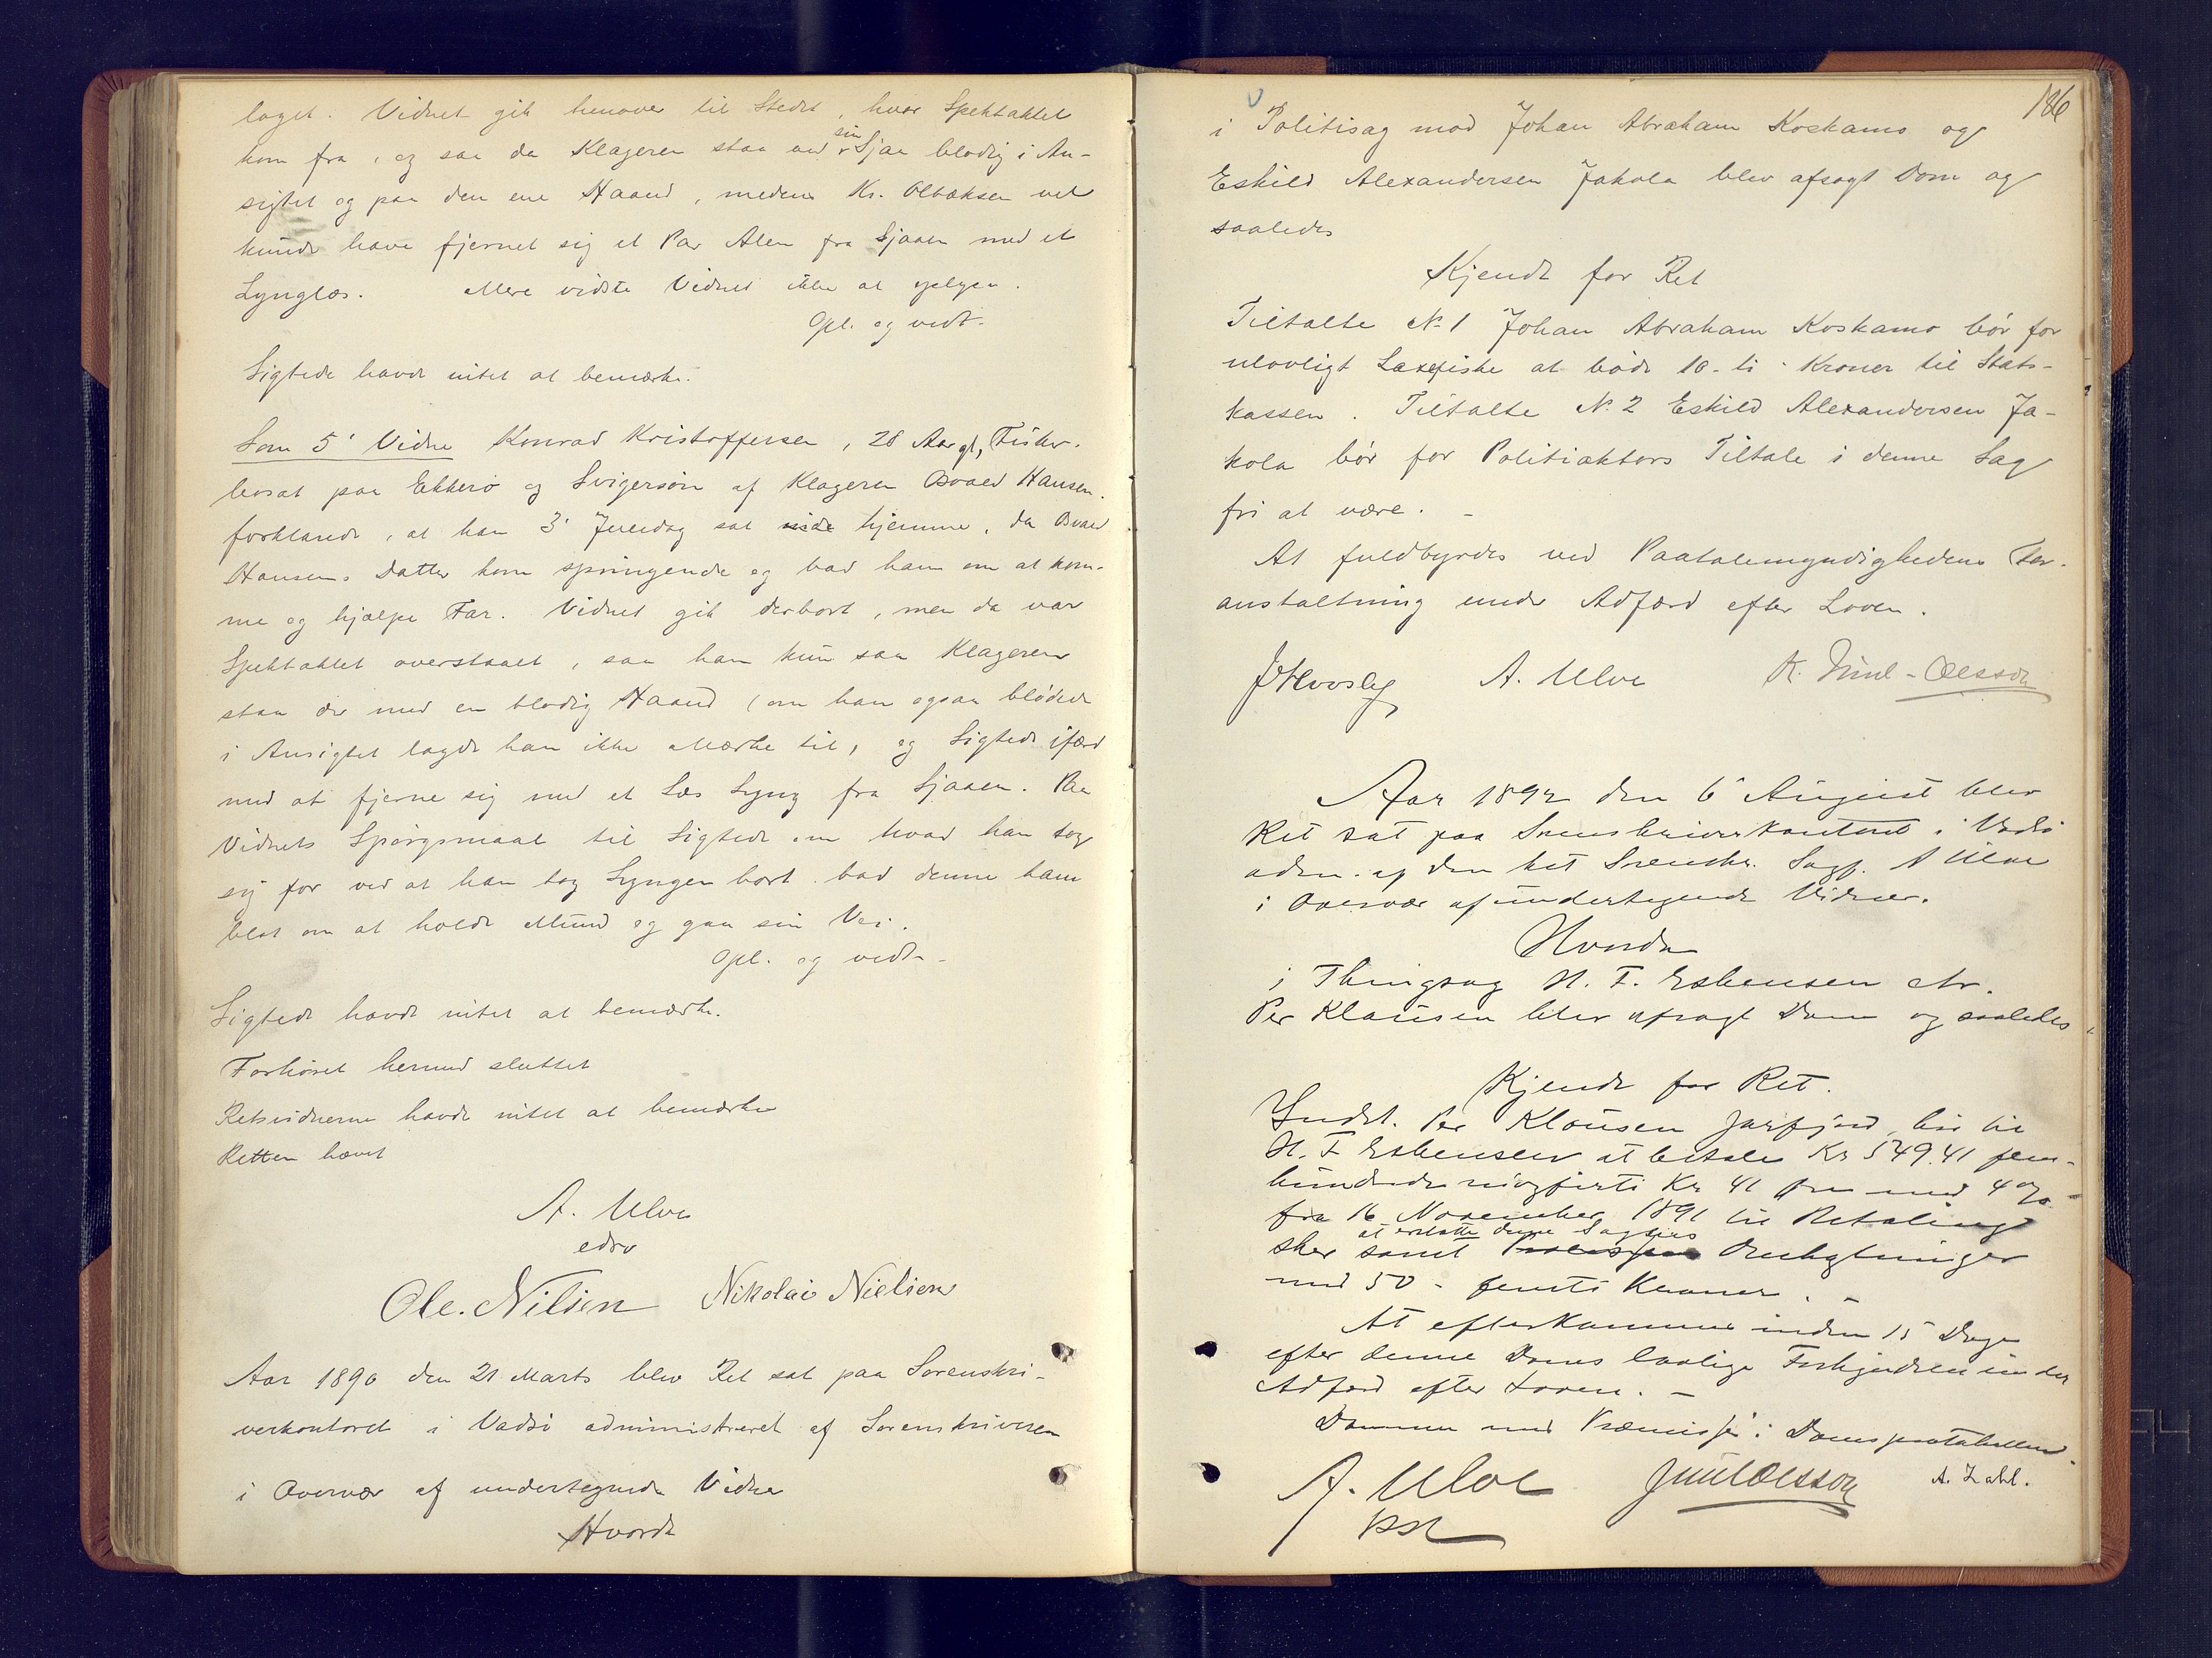 laget. Vidnet gik henover til Stedet, hvor Spektaklet
kom fra, og saa da Klageren staa ved sin Sjaa blodig i An-
sigtet og paa den ene Haand, medens Kr. Olbaksen vel
kunde have fjernet sig et Par Alen fra Sjaaen med et
Lynglæs. Mere vidste Vidnet ikke at oplyse.
Opl. og vedt.
Sigtede havde intet at bemærke.
Som 5' Vidne Konrad Kristoffersen, 28 Aar gl, Fisker.
bosat paa Ekkerø og Svigersøn af Klageren Osvald Hansen.
forklarede, at han 3' Juledag sat inde hjemme, da Osvald
Hansens Datter kom springende og bad ham om at kom-
me og hjælpe Far. Vidnet gik derbort, men da var
Spektaklet overstaaet, saa han kun saa Klageren
staa der med en blodig Haand (om han ogsaa blødede
i Ansigtet lagde han ikke Mærke til, og Sigtede ifærd
med at fjerne sig med et Læs Lyng fra Sjaaen. Paa
Vidnets Spørgsmaal til Sigtede om hvad han tog
sig for ved at han tog Lyngen bort. bad denne ham
blot om at holde Mund og gaa sin Vei.
Opl. og vedt.
Sigtede havde intet at bemærke.
Forhøret hermed sluttet
Retsvidnerne havde intet at bemærke
Retten hævet
A. Ulve
edsv
Ole. Nilsen Nikolai Nielsen
Aar 1890 den 21 Marts blev Ret sat paa Sorenskri-
verkontoret i Vadsø administreret af Sorenskriveren
i Overvær af undertegnede Vidner
Hvorda
186
i Politisag mod Johan Abraham Koskamo og
Eskild Alexandersen Jakola blev afsagt Dom og
saaledes
Kjendt for Ret
Tiltalte No 1 Johan Abraham Koskamo bør for
ulovligt Laxefiske at bøde 10 - ti - Kroner til Stats-
kassen. Tiltalte No. 2 Eskild Alexandersen Ja-
kola bør for Politiaktors Tiltale i denne Sag
fri at være. -
At fuldbyrdes ved Paatalemyndighedens For-
anstaltning under Adfærd efter Loven.
A. Ulve K. Juul-Olsson
Aar 1892 den 6' August blev
Ret sat paa Sorenskriverkontoret i Vadsø
adm. af den kst Sorenskr. Sagf. A Ulve
i Overvær af undertegnede Vidner.
Hvorda
i Thingsag H. F. Esbensen ctr.
Per Klausen blev afsagt Dom og saaledes
Kjendt for Ret.
Indst. Per Klausen Jarfjord, bør til
H. F Esbensen at betale Kr 549.41 fem-
hundrede niogførti Kr 41 Øre med 4 %
fra 16 November 1891 til Betaling
at erstatte denne Sagens
sker samt Omkostninger
med 50 - femti Kroner. -
At efterkommes inden 15 Dage
efter denne Doms lovlige Forkyndelse under
Adfærd efter Loven. -
Dommen med Præmisser i Domsprotokollen.
A. Ulve Juul Olsson A. Zahl.
kst